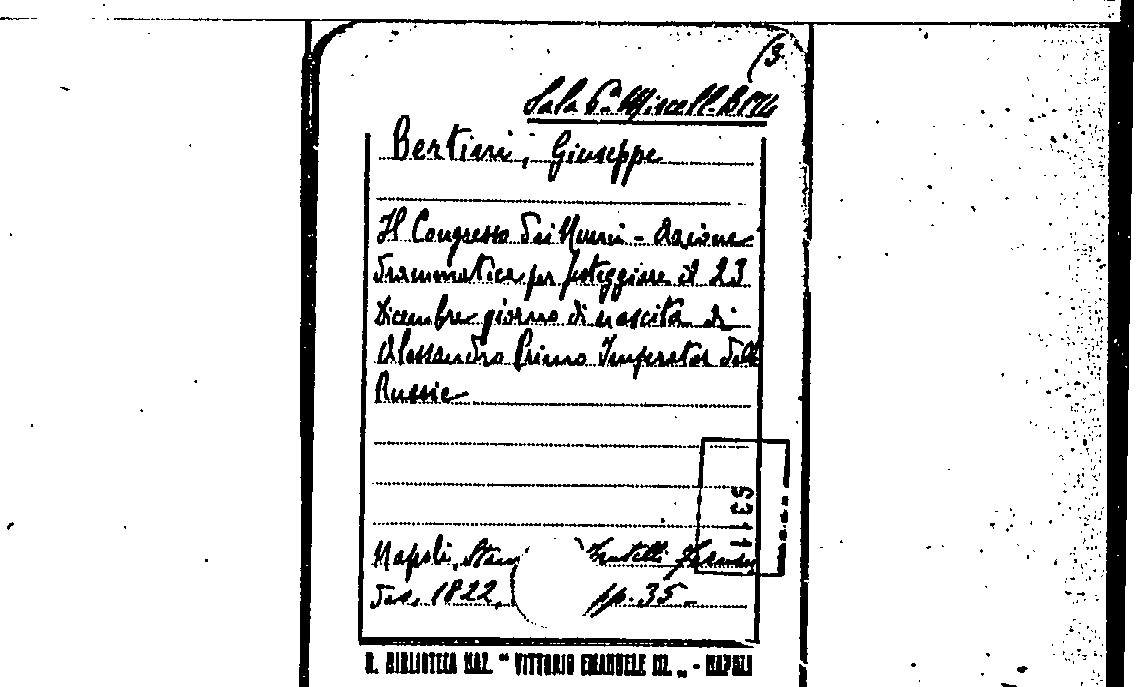 (3
Sala 6ª Miscell. B 174
Bertini, Giuseppe
Il Congresso dei Numi - Azione
drammatica per festeggiare il 23
Dicembre giorno di nascita di
Alessandro Primo Imperator delle
Russie
5311
Napoli, Stam Fratelli Fernan
des, 1822, pp. 35 -
R. BIBLIOTECA NAZ. " VITTORIO EMANUELE III. „ - NAPOLI